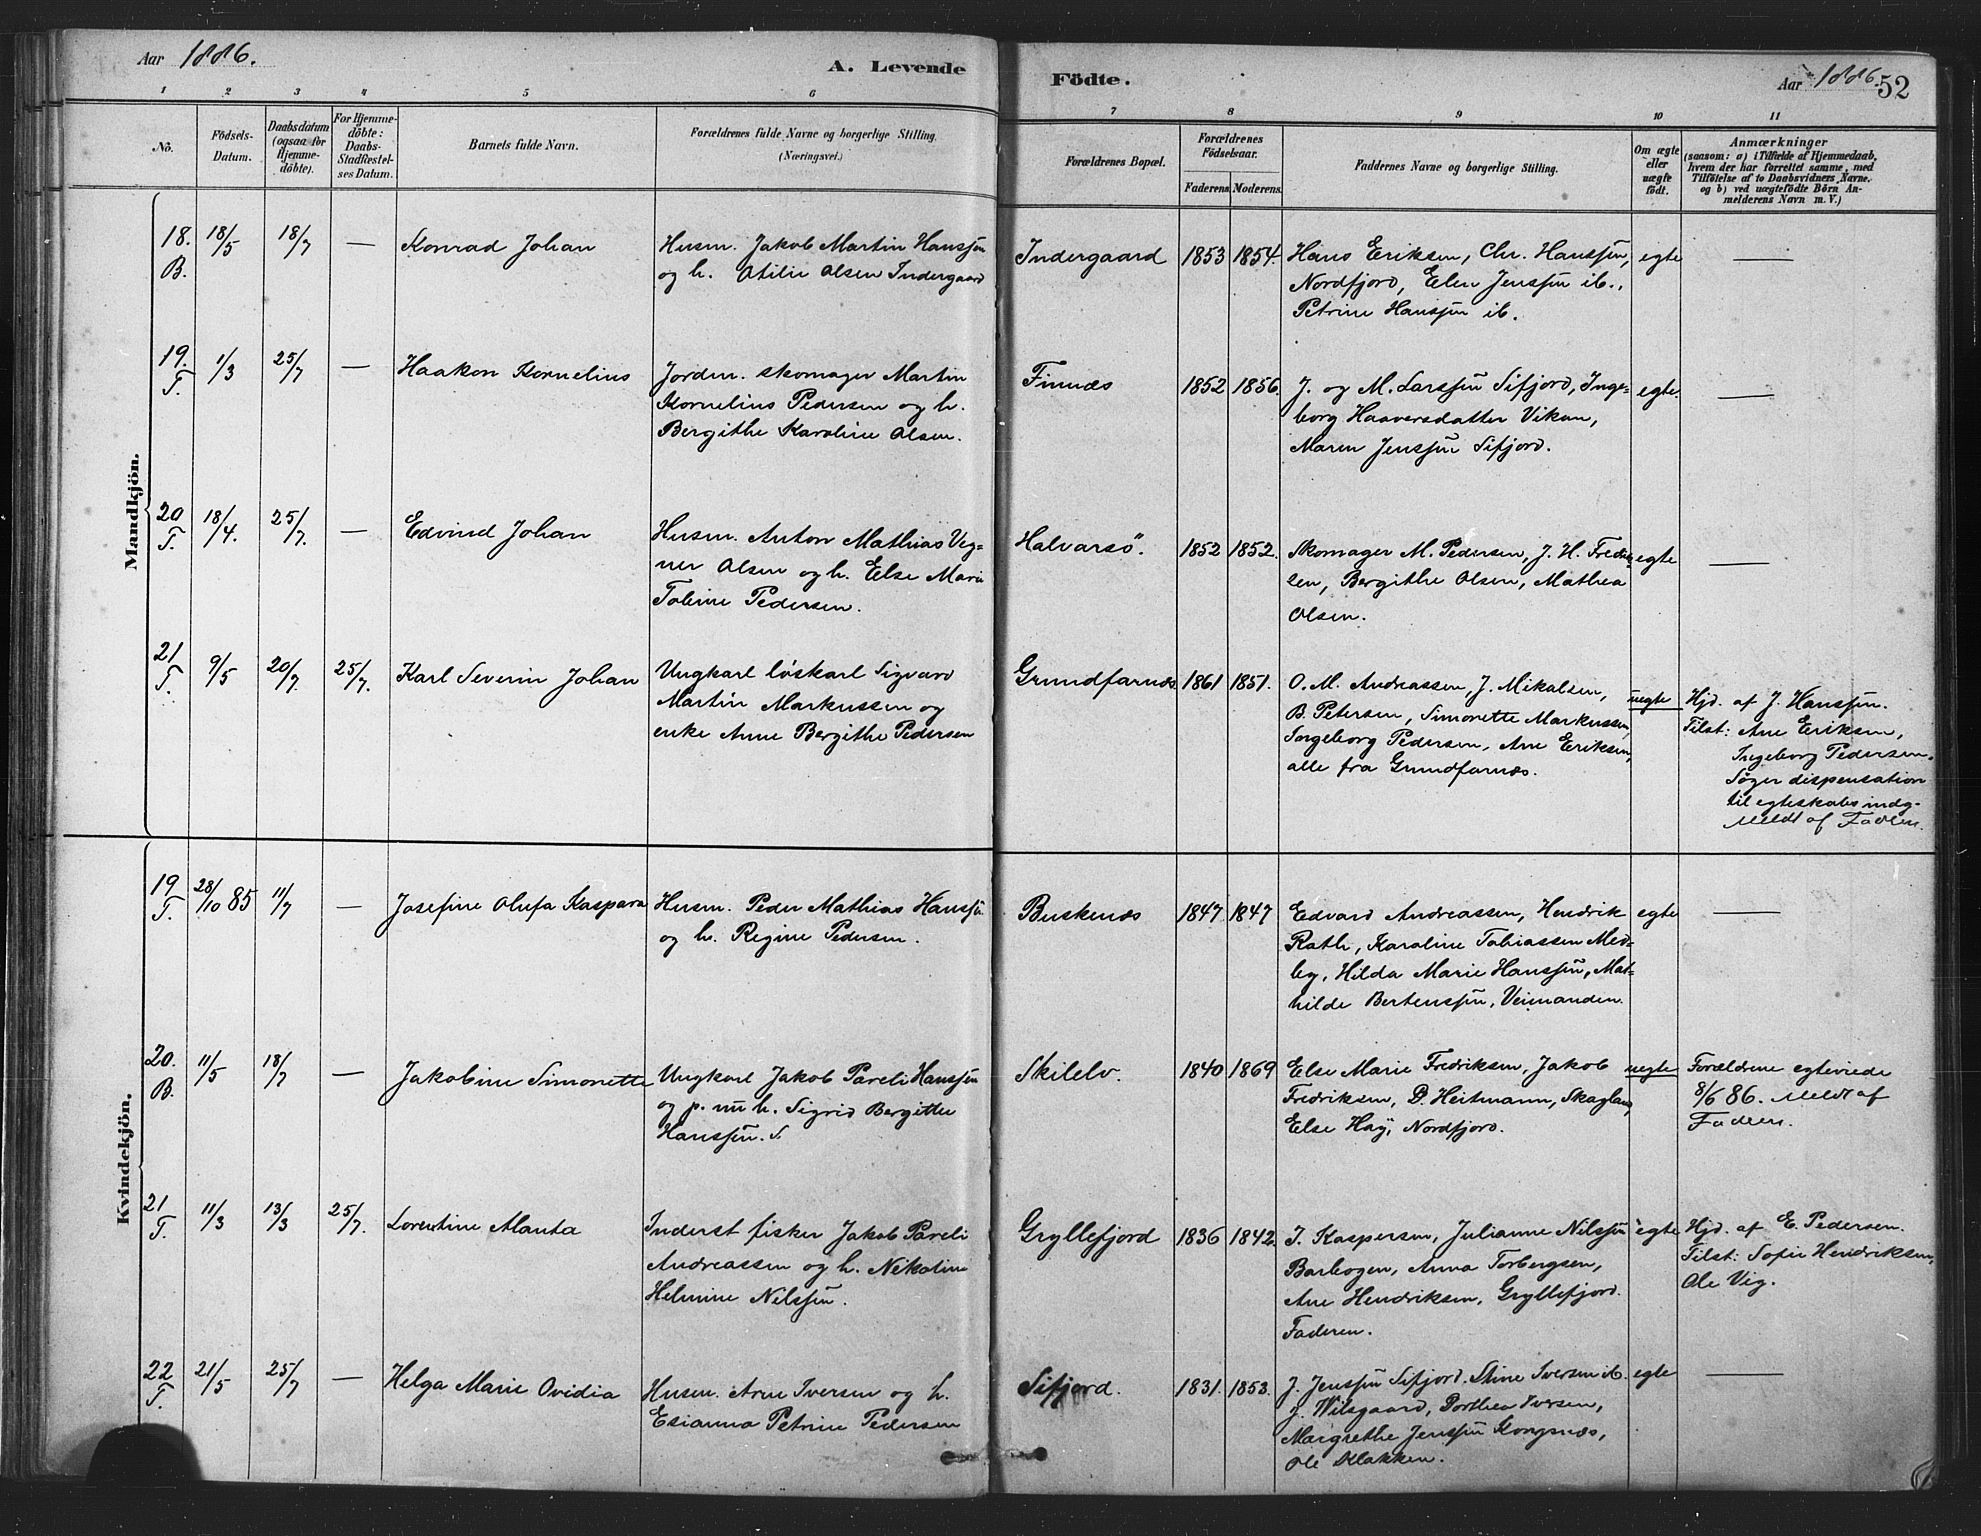 Aar 1886.
A. Levende
1 2 3 4 5 6
No.
Födsels-Datum.
Daabsdatum (ogsaa for Hjemme-döbte).
For Hjemme-döbte: Daabs-Stadfæstel-ses Datum.
Barnets fulde Navn.
Forældrenes fulde Navne og borgerlige Stilling. (Næringsvei.)
Födte.
Aar 1886. 52
7 8 9 10 11
Forældrenes Bopæl.
Forældrenes Födselsaar.
Faderens. Moderens.
Faddernes Navne og borgerlige Stilling.
Om ægte eller uægte födt.
Anmærkninger
(saasom: a) i Tilfælde af Hjemmedaab,
hvem der har forrettet samme, med
Tilföielse af to Daabsvidners Navne.
og b) ved uægtefödte Börn An-
melderens Navn m. V.)
Mandkjön.
18. B. 18/5 18/7 — Konrad Johan
Husm. Jakob Martin Hanssen
og h. Otilie Olsen Indergaard
Indergaard 1853 1854.
Hans Eriksen, Chr. Hanssen,
Nordfjord, Elen Jenssen ib.,
Petrine Hanssen ib.
egte —
19. T. 1/3 25/7 — Haakon Kornelius
Jordm. skomager Martin
Kornelius Pedersen og h.
Bergithe Karoline Olsen.
Finnæs 1852 1856.
J. og M. Larssen Sifjord, Inge-
borg Haaversdatter Vikan,
Maren Jenssen Sifjord.
egte. —
20 T. 18/4. 25/7. — Edvind Johan
Husm. Anton Mathias Veg-
ner Olsen og h. Else Marie
Tobine Pedersen.
Halvarsö. 1852 1852.
Skomager M. Pedersen, J. H. Fredrik-
sen, Bergithe Olsen, Mathea
Olsen.
egte —
21 T. 9/5 20/7. 25/7. Karl Severin Johan
Ungkarl løskarl Sigvard
Martin Markussen og
enke Anne Bergithe Pedersen
Grundfarnæs 1861 1851.
O. M. Andreassen, J. Mikalsen,
B. Petersen, Simonette Markussen,
Ingeborg Pedersen, Ane Eriksen,
alle fra Grundfarnæs.
uegte
Hjd. af J. Hanssen.
Tilst: Ane Eriksen,
Ingeborg Pedersen.
Søger dispensation
til egteskabs indg-
Meldt af Faderen.
Kvindekjön.
19 T. 28/10 85 11/7 — Josefine Olufa Kaspara
Husm. Peder Mathias Hanssen
og h. Regine Pedersen.
Buskenæs 1847 1847
Edvard Andreassen, Hendrik
Rath, Karoline Tobiassen Med-
by, Hilda Marie Hanssen, Mat-
hilde Bertenssen, Veimanden.
egte —
20. B. 11/5 18/7 — Jakobine Simonette
Ungkarl Jakob Pareli Hanssen
og p. nu h. Sigrid Bergitte
Hanssen. S.
Skilelv. 1840 1869
Else Marie Fredriksen, Jakob
Fredriksen, D. Heitmann, Skagland,
Else Hay, Nordfjord.
uegte
Forældrene egteviede
8/6 86. Meldt af
Faderen.
21 T. 11/3 13/3 25/7. Lorentine Alanta
Inderst fisker Jakob Pareli
Andreassen og h. Nikoline
Helmine Nilssen.
Gryllefjord 1836 1842.
J. Kaspersen, Julianne Nilssen
Barbogen, Anna Torbergsen,
Ane Hendriksen, Gryllefjord.
Faderen.
egte
Hjd. af E. Pedersen.
Tilst: Sofie Hendriksen,
Ole Vig.
22 T. 21/5 25/7 — Helga Marie Ovidia
Husm. Arne Iversen og h.
Esianna Petrine Pedersen
Sifjord. 1831. 1853.
J. Jenssen Sifjord. Stine Iversen ib.
J. Wilsgaard, Dorthea Iversen,
Margrethe Jenssen Kongsnæs,
Ole Klakken.
egte —